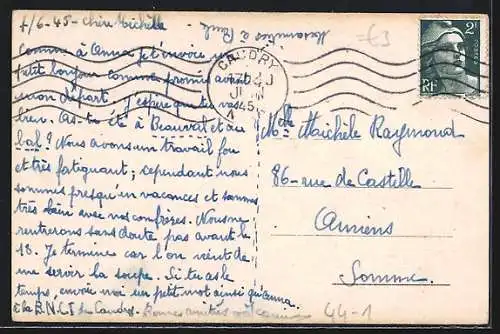 7/6-45 - Chère Michèle
Comme à Anna je t'envoie un
petit bonjour comme promis avant
mon départ. J'espère que tu vas
bien. As-tu été à Beauval et au
bal? Nous avons un travail fou
et très fatiguant; cependant nous
sommes presqu'en vacances et sommes
très bien avec nos confrères. Nous ne
rentrerons sans doute pas avant le
18. Je termine car l'on vient de
me servir la soupe. Si tu as le
temps, envoie moi un petit mot ainsi qu'Anna.
à la B.N.C.I de Caudry. Bonnes amitiés
à Paul
CAUDRY
JUIN
45
2F
RF
POSTES
Melle Maichèle Raymond
86 - rue de Castelle
Amiens
Somme
44-1
€3